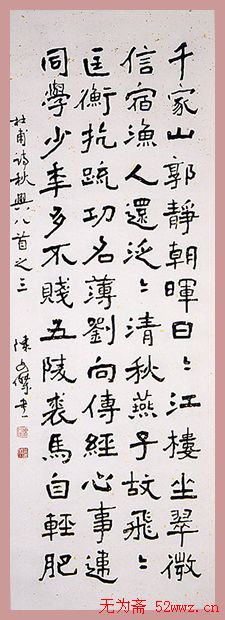 千家山郭靜朝暉日〻江樓坐翠微
信宿漁人還泛〻清秋燕子故飛〻
匡衡抗疏功名薄劉向傳經心事違
同學少年多不賤五陵裘馬自輕肥
杜甫詩秋興八首之三 陳文傑書
无为斋 52wwz.cn